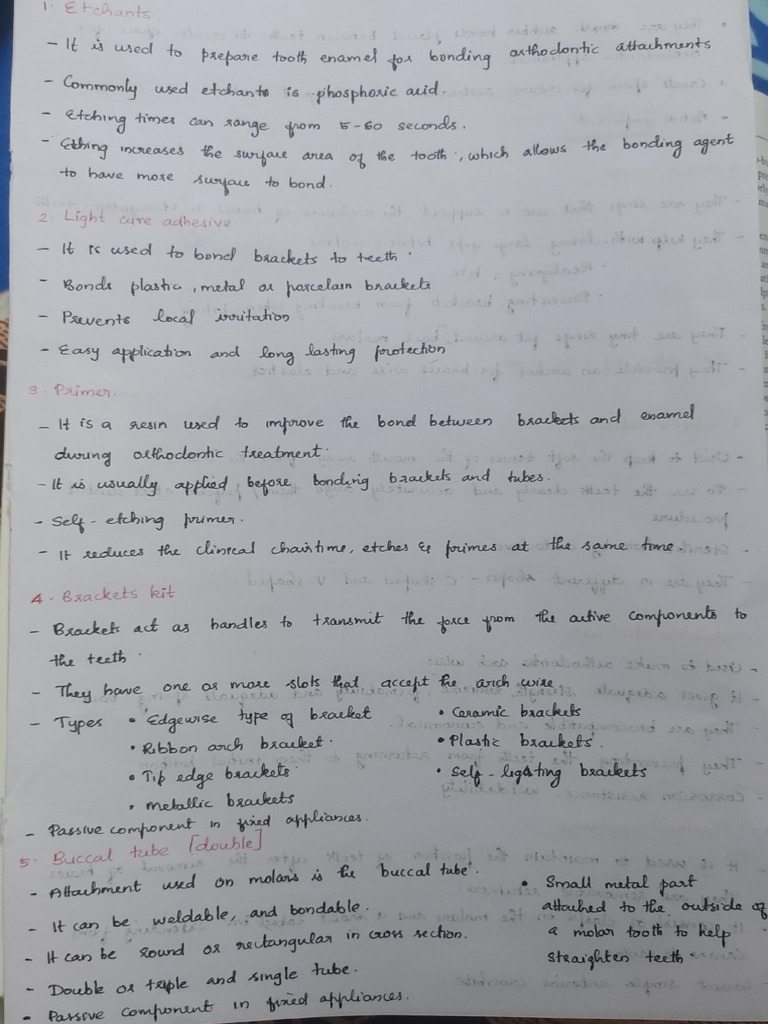 1. Etchants.
- It is used to prepare tooth enamel for bonding orthodontic attachments
- Commonly used etchants is phosphoric acid.
- Etching times can range from 5-60 seconds.
- Ething increases the surface area of the tooth, which allows the bonding agent
to have more surface to bond.
2. Light cure adhesive
- It is used to bond brackets to teeth.
- Bonds plastic, metal or porcelain brackets
- Prevents local irritation
- Easy application and long lasting protection
3. Primer.
- It is a resin used to improve the bond between brackets and enamel
during orthodontic treatment.
- It is usually applied before bonding brackets and tubes.
- Self-etching primer.
- It reduces the clinical chairtime, etches & primes at the same time.
4. Brackets kit
- Brackets act as handles to transmit the force from the active components to
the teeth.
- They have one or more slots that accept the arch wire
- Types • Edgewise type of bracket
• Ribbon arch bracket.
• Tip edge brackets
• Metallic brackets
• Ceramic brackets
• Plastic brackets.
• Self-ligating brackets
- Passive component in fixed appliances.
5. Buccal tube [double]
- Attachment used on molars is the 'buccal tube'.
- It can be weldable, and bondable.
- It can be round or rectangular in cross section.
- Double or triple and single tube.
- Passive component in fixed appliances.
• Small metal part
attached to the outside of
a molar tooth to help
straighten teeth.